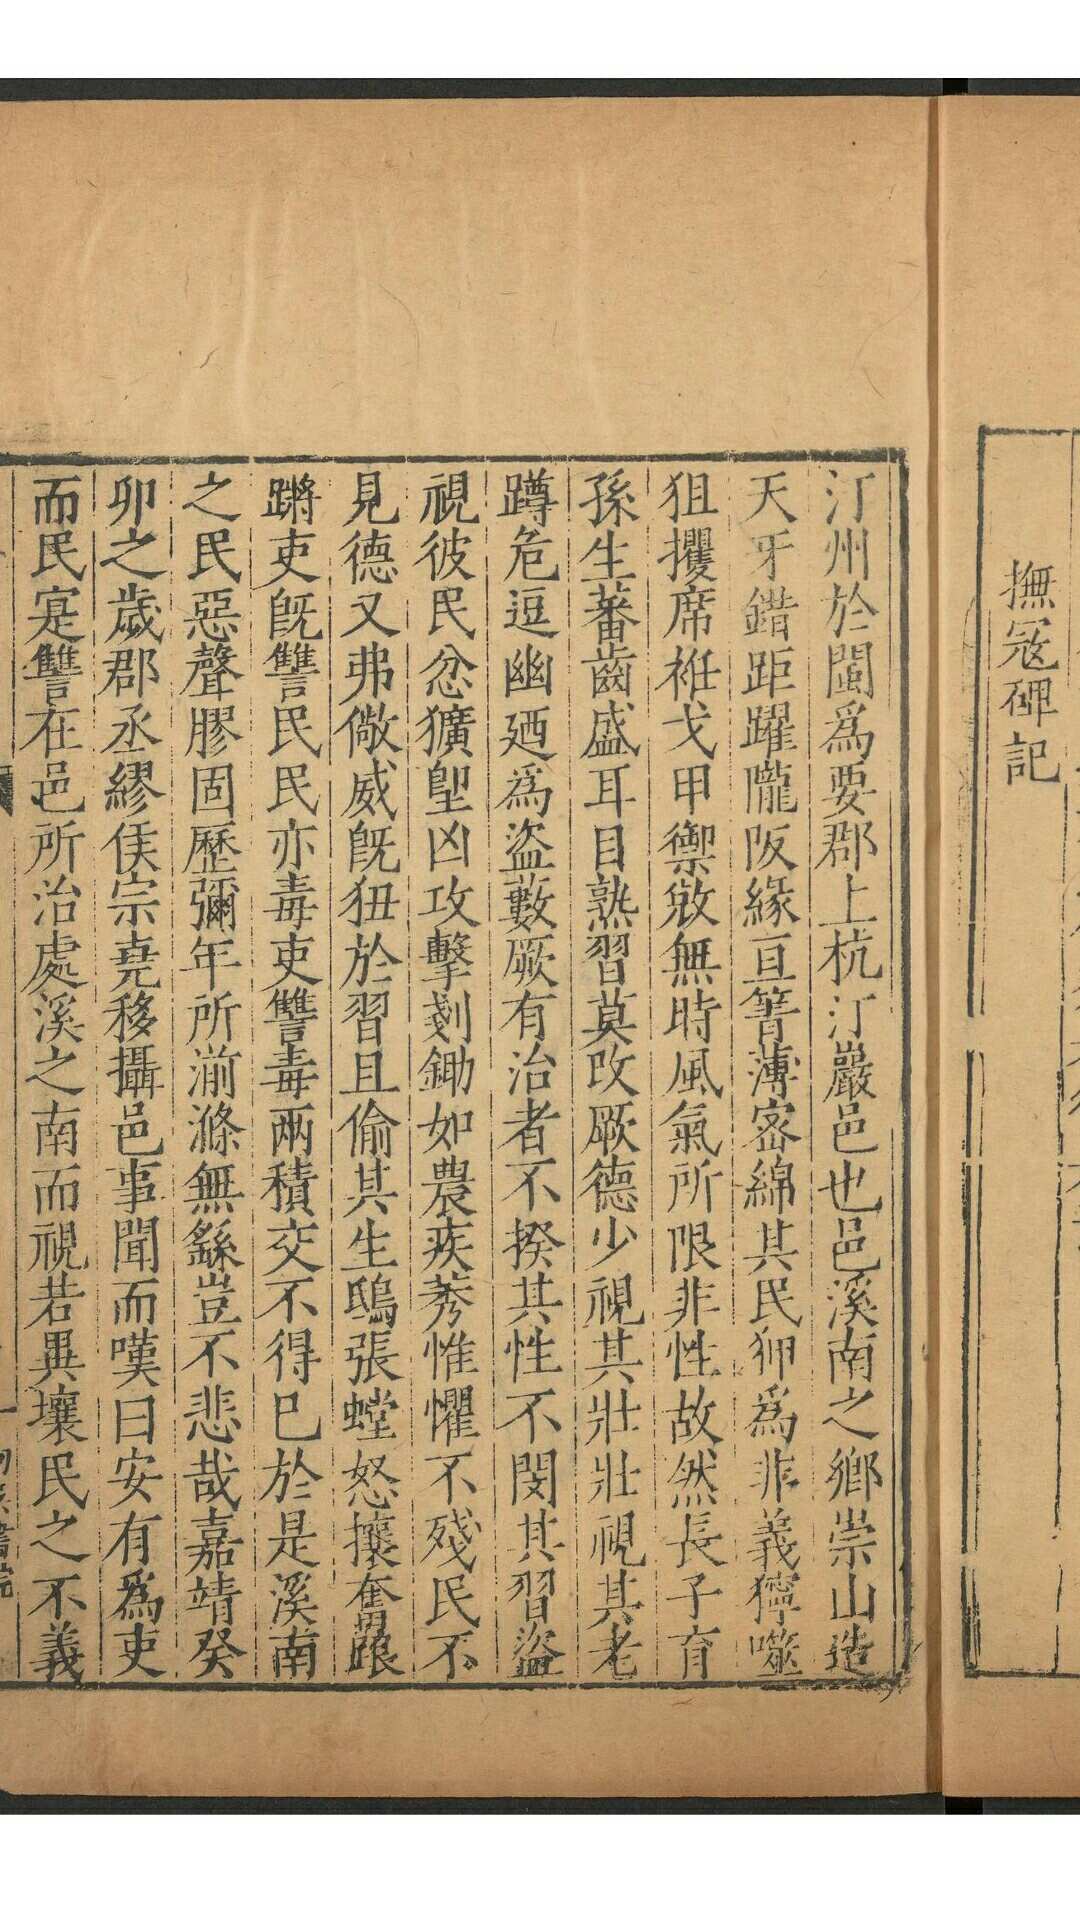 撫冦碑記
汀州於閩爲要郡上杭汀巖邑也邑溪南之鄉崇山造
天牙錯距躍隴阪緣亘箐薄宻綿其民狎爲非義獰噬
狙攫席袵戈甲禦敓無時風氣所限非性故然長子育
孫生蕃齒盛耳目熟習莫改厥德少視其壯壯視其老
蹲危逗幽廼爲盜藪厥有治者不揆其性不閔其習盜
視彼民忿獷堲凶攻擊刬鋤如農疾莠惟懼不殘民不
見德又弗儆威旣狃於習且偷其生鴟張螳怒攘奮踉
蹡吏旣讐民民亦毒吏讐毒兩積交不得已於是溪南
之民惡聲膠固歷彌年所湔滌無繇豈不悲哉嘉靖癸
卯之歲郡丞繆侯宗堯移攝邑事聞而嘆曰安有爲吏
而民寔讐在邑所治處溪之南而視若異壤民之不義